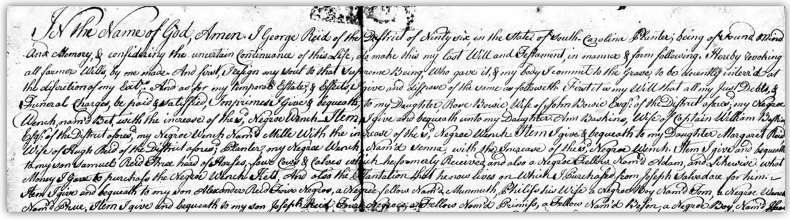 IN the Name of God, Amen. I George Reid of the District of Ninty six, in the State of South-Carolina Planter, being of Sound Mind
And Memory, & considering the uncertain Continuance of this Life, do make this my Last Will and Testament, in manner & form following. Hereby revoking
all former Wills, by me made. And first, I resign my Soul to that Supreme Being, Who gave it, & my body I commit to the Grave to be decently interr'd at
the discretion of my Exrs. And as for my temporal Estate, & Effects, I give and dispose of the same as followeth. First it is my Will that all my Just Debts, &
Funeral Charges, be paid & satisfied, Imprimis I give & bequeath, to my Daughter Rose Bowie Wife of John Bowie Esqr. of the District aforesd, my Negroe
Wench nam'd Bet, with the increase of the sd. Negroe Wench. Item I give and bequeath unto my Daughter Ann Baskins, Wife of Captain William Baskins
of the District aforesd, my Negroe Wench Nam'd Mille With the increase of the sd. Negroe Wench. Item I give & bequeath to my Daughter Margaret Reid
Wife of Hugh Reid of the District aforesd. Planter, my Negroe Wench, Nam'd Senna, with the Increase of the sd. Negroe Wench. Item I give and bequeath
to my son Samuel Reid three head of Horses, four Cows & Calves which he formerly Received, and also a Negroe Fellow Nam'd Adam, and Likewise what
Money I gave to purchase the Negroe Wench Kate, And also the Plantation that he now lives on Which I Purchased from Joseph Salvadore for him.
Item I give and bequeath to my son Alexander Reid Five Negros, a Negroe fellow Nam'd Mammuth, Philis his Wife a Negroe Boy Nam'd Tom, a Negroe Wench
Nam'd Prue, Item I give and bequeath to my son Joseph Reid, Negroes, a Fellow Nam'd Primiss, a Fellow Nam'd Befor, a Negroe Boy Nam'd